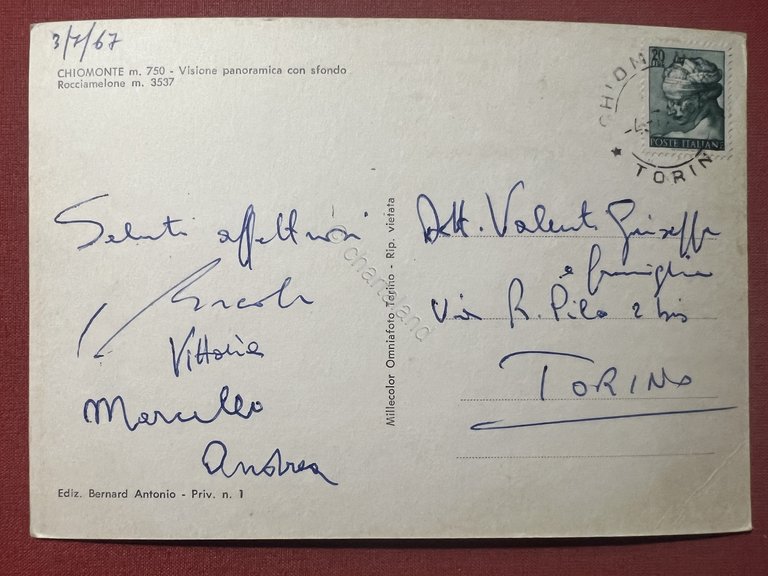 3/7/67
CHIOMONTE m. 750 - Visione panoramica con sfondo
Rocciamelone m. 3537
POSTE ITALIANE
TORIN
Saluti affettuosi
Vittoria
Marcello
Andrea
Ediz. Bernard Antonio - Priv. n. 1
Millecolor Omniafoto Torino - Rip. vietata
Dott. Valenti Giuseppe
e famiglia
Via R. Pilo 2 bis
TORINO